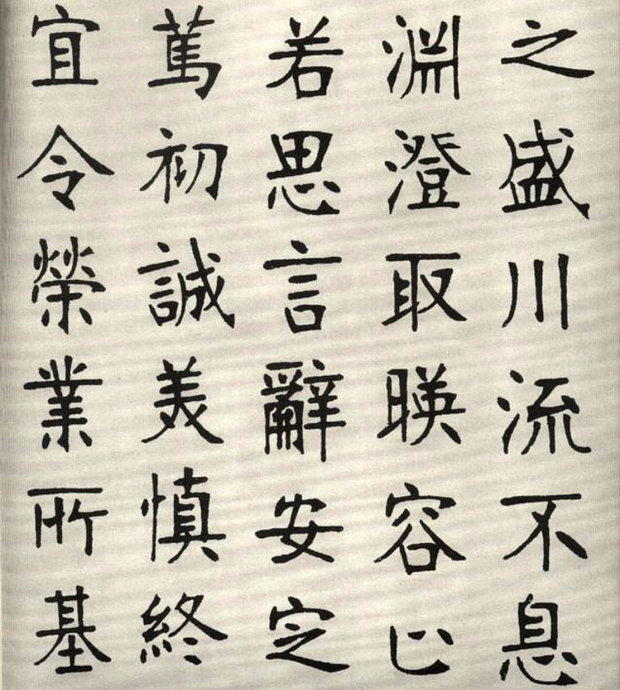 之盛川流不息
淵澄取暎容止
若思言辭安定
篤初誠美慎終
宜令榮業所基